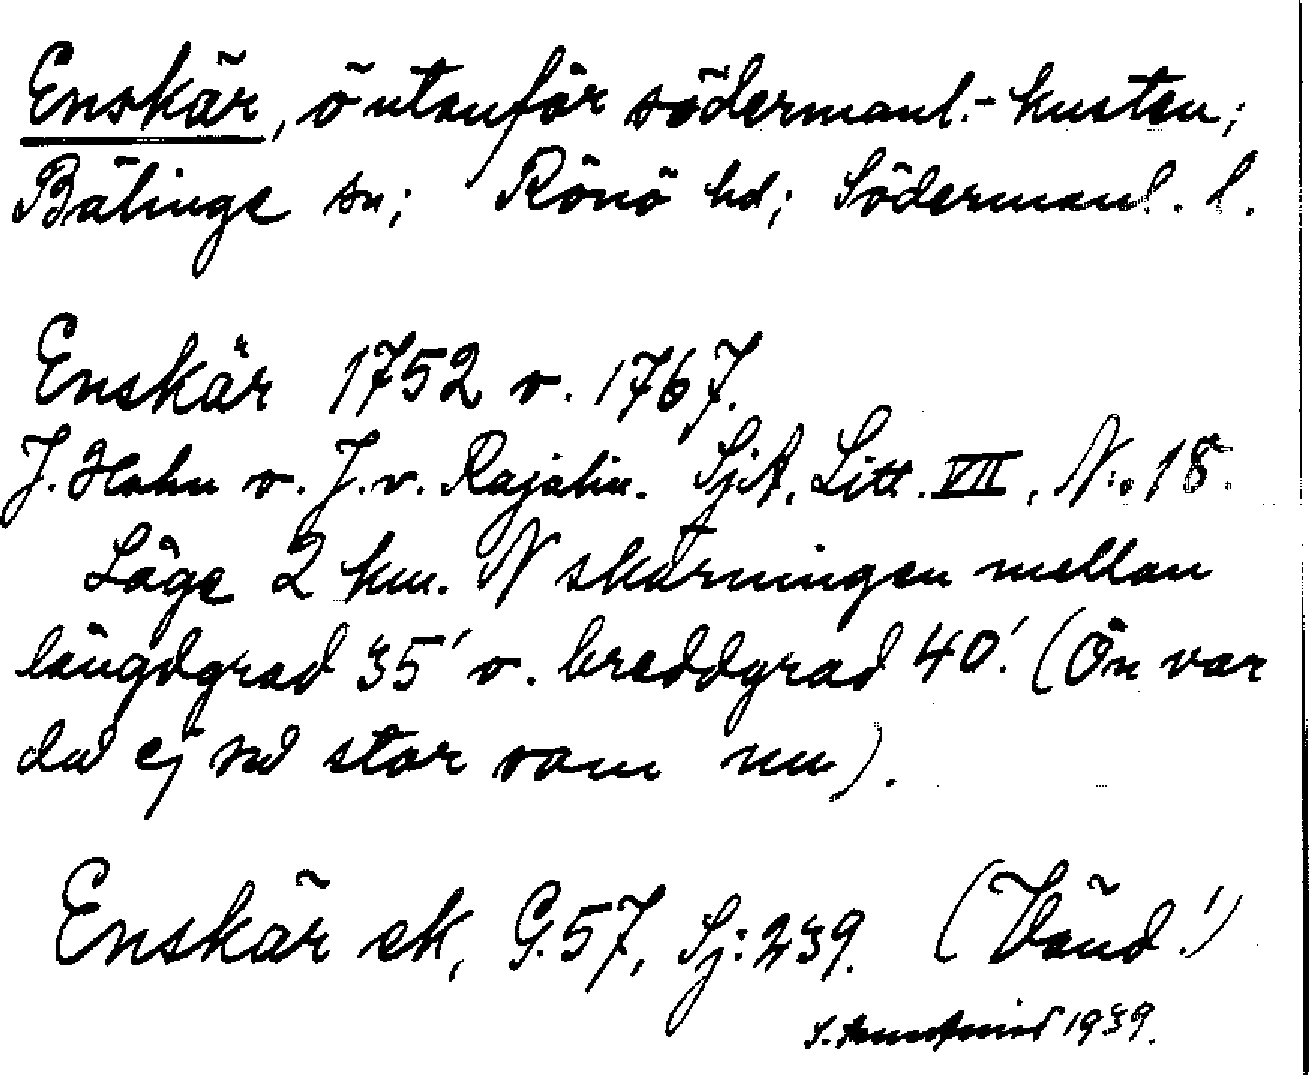 Enskär, ö utanför södermanl.-kusten;
Bälinge sn; Rönö hd; Södermanl. l.
Enskär 1752 o. 1767.
J. Hahn o. J. v. Rajalin. SjA. Litt. VII, N:o 18.
Läge 2 km. N skärningen mellan
längdgrad 35' o. breddgrad 40'. (Ön var
då ej så stor som nu).
Enskär ek, G. 57, Sj: 239. (Vänd!)
S. 1939.